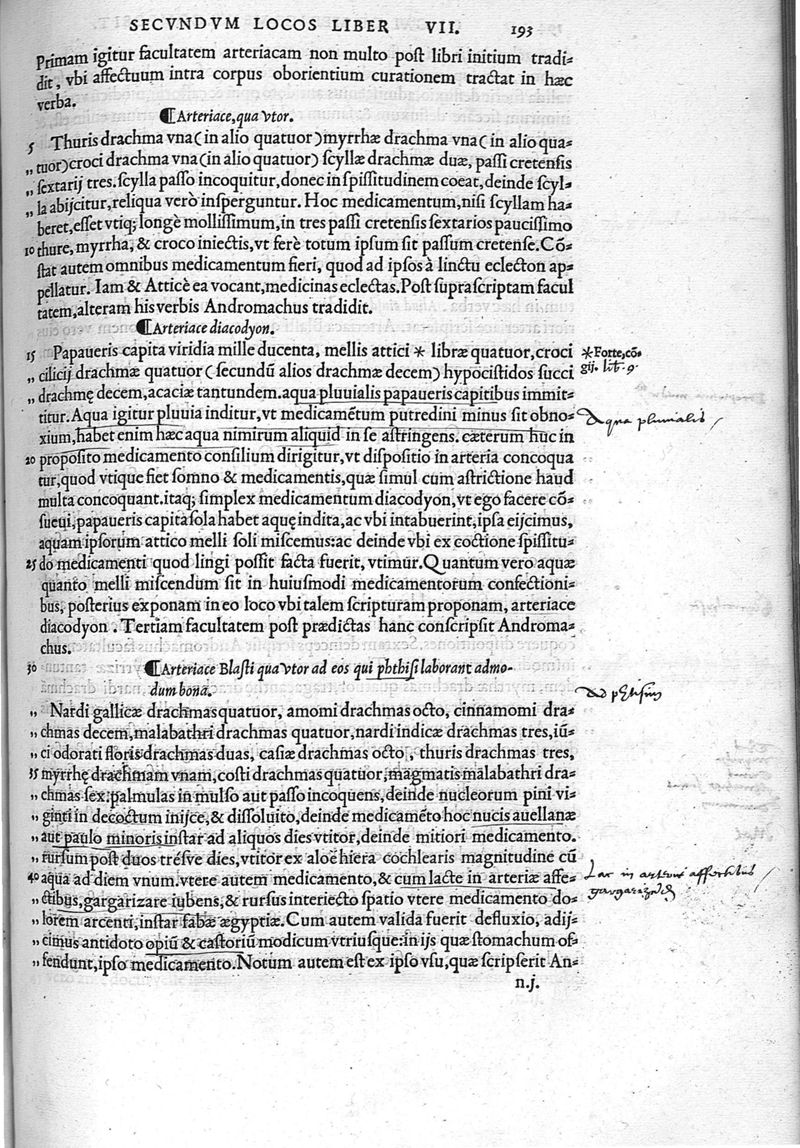 SECVNDVM LOCOS LIBER VII. 193
Primam igitur facultatem arteriacam non multo post libri initium tradi-
dit, vbi affectuum intra corpus oborientium curationem tractat in hæc
verba.
¶Arteriace, qua vtor.
5 Thuris drachma vna (in alio quatuor) myrrhæ drachma vna (in alio qua-
„ tuor) croci drachma vna (in alio quatuor) scyllæ drachmæ duæ, passi cretensis
„ sextarij tres. scylla passo incoquitur, donec in spissitudinem coeat, deinde scyl-
„ la abijcitur, reliqua verò insperguntur. Hoc medicamentum, nisi scyllam ha-
beret, esset vtiq; longè mollissimum, in tres passi cretensis sextarios paucissimo
10 thure, myrrha, & croco iniectis, vt ferè totum ipsum sit passum cretense. Cõ-
stat autem omnibus medicamentum fieri, quod ad ipsos à linctu eclecton ap-
pellatur. Iam & Atticè ea vocant, medicinas eclectas. Post suprascriptam facul
tatem, alteram his verbis Andromachus tradidit.
¶Arteriace diacodyon.
15 Papaueris capita viridia mille ducenta, mellis attici * libræ quatuor, croci
„ cilicij drachmæ quatuor (secundũ alios drachmæ decem) hypocistidos succi
„ drachmę decem, acaciæ tantundem. aqua pluuialis papaueris capitibus immit-
titur. Aqua igitur pluuia inditur, vt medicamẽtum putredini minus sit obno-
xium, habet enim hæc aqua nimirum aliquid in se astringens. cæterum huc in
20 proposito medicamento consilium dirigitur, vt dispositio in arteria concoqua
tur, quod vtique fiet somno & medicamentis, quæ simul cum astrictione haud
multa concoquant. itaq; simplex medicamentum diacodyon, vt ego facere cõ-
sueui, papaueris capita sola habet aquę indita, ac vbi intabuerint, ipsa eijcimus,
aquam ipsorum attico melli soli miscemus: ac deinde vbi ex coctione spissitu-
25 do medicamenti quod lingi possit facta fuerit, vtimur. Quantum vero aquæ
quanto melli miscendum sit in huiusmodi medicamentorum confectioni-
bus, posterius exponam in eo loco vbi talem scripturam proponam, arteriace
diacodyon. Tertiam facultatem post prædictas hanc conscripsit Androma-
chus.
30 ¶Arteriace Blasti qua vtor ad eos qui phthisi laborant admo-
dum bona.
„ Nardi gallicæ drachmas quatuor, amomi drachmas octo, cinnamomi dra-
„ chmas decem, malabathri drachmas quatuor, nardi indicæ drachmas tres, iũ-
„ ci odorati floris drachmas duas, casiæ drachmas octo, thuris drachmas tres,
35 myrrhę drachmam vnam, costi drachmas quatuor, magmatis malabathri dra-
„ chmas sex: palmulas in mulso aut passo incoquens, deinde nucleorum pini vi-
„ ginti in decoctum inijce, & dissoluito, deinde medicamẽto hoc nucis auellanæ
„ aut paulo minoris instar ad aliquos dies vtitor, deinde mitiori medicamento.
„ rursum post duos trésve dies, vtitor ex aloë hiera cochlearis magnitudine cũ
40 aqua ad diem vnum. vtere autem medicamento, & cum lacte in arteriæ affe-
„ ctibus, gargarizare iubens, & rursus interiecto spatio vtere medicamento do-
„ lorem arcenti, instar fabæ ægyptiæ. Cum autem valida fuerit defluxio, adij-
„ cimus antidoto opiũ & castoriũ modicum vtriusque: in ijs quæ stomachum of-
„ fendunt, ipso medicamento. Notum autem est ex ipso vsu, quæ scripserit An-
n.j.
*Forte, cõ-
gij. lib. 9.
Aqua pluuialis
Ad ptisim
Lac in arteriæ affectibus